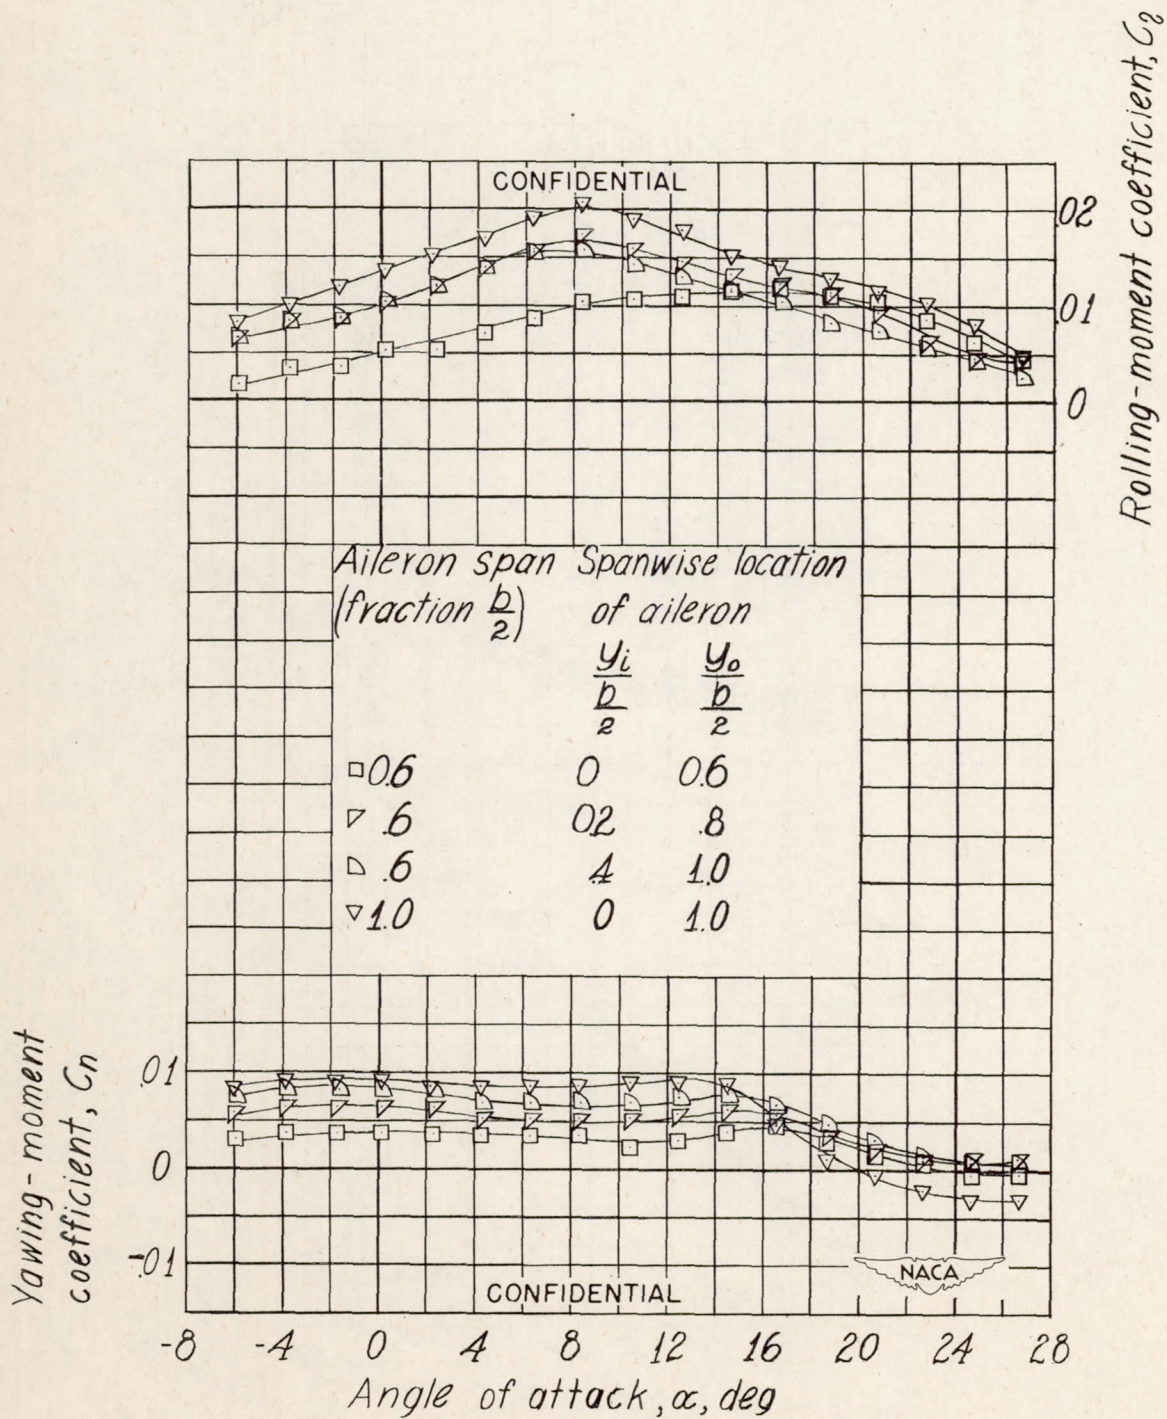 CONFIDENTIAL
.02
.01
0
Rolling-moment coefficient, Cl
Aileron span Spanwise location
(fraction b/2) of aileron
yi/b/2 yo/b/2
0.6 0 0.6
.6 0.2 .8
.6 .4 1.0
1.0 0 1.0
Yawing-moment
coefficient, Cn
.01
0
-.01
NACA
CONFIDENTIAL
-8 -4 0 4 8 12 16 20 24 28
Angle of attack, α, deg